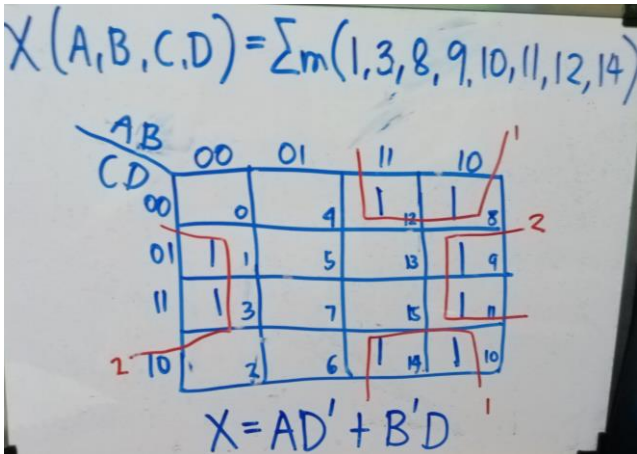 X(A,B,C,D)=Σm(1,3,8,9,10,11,12,14)
AB
CD
00 01 11 10
1
00 0 4 1 12 1 8
2
01 1 1 5 13 1 9
11 1 3 7 15 1 11
2 10 2 6 1 14 1 10
1
X=AD'+B'D